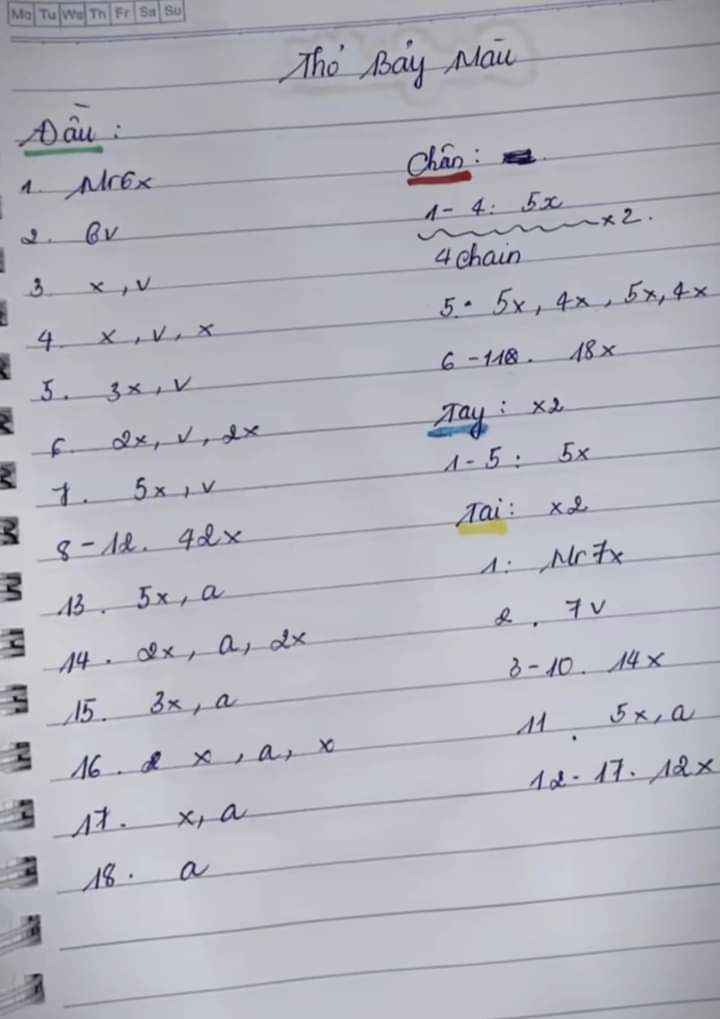 Mo Tu We Th Fr Sa Su
Thỏ Bảy Màu
Đầu :
1. Mr6x
2. 6v
3 x , v
4. x , v , x
5. 3x , v
6. 2x, v , 2x
7. 5x , v
8 - 12. 42x
13. 5x , a
14. 2x , a , 2x
15. 3x , a
16. x , a , x
17. x, a
18. a
Chân :
1 - 4 : 5x
x2.
4 chain
5. 5x , 4x , 5x , 4x
6 - 118. 18x
Tay : x2
1 - 5 : 5x
Tai : x2
1 : Mr7x
2 . 7v
3 - 10. 14x
11 . 5x , a
12 - 17. 12x